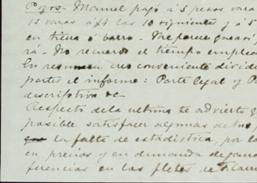 Pozos- Manuel pagó á 5 pesos vara
12 varas á $4 las 10 siguientes y á 5
en tierra ó barro. Me parece ganará
rá. No recuerdo el tiempo emplea
En resumen creo conveniente dividir
partes el informe: Parte legal y P
descriptiva &c
Respecto de la ultima te advierto q
posible satisfacer algunas de tus
la falta de estadistica, por la
en precios y en demanda de gana
ferencias en los fletes de